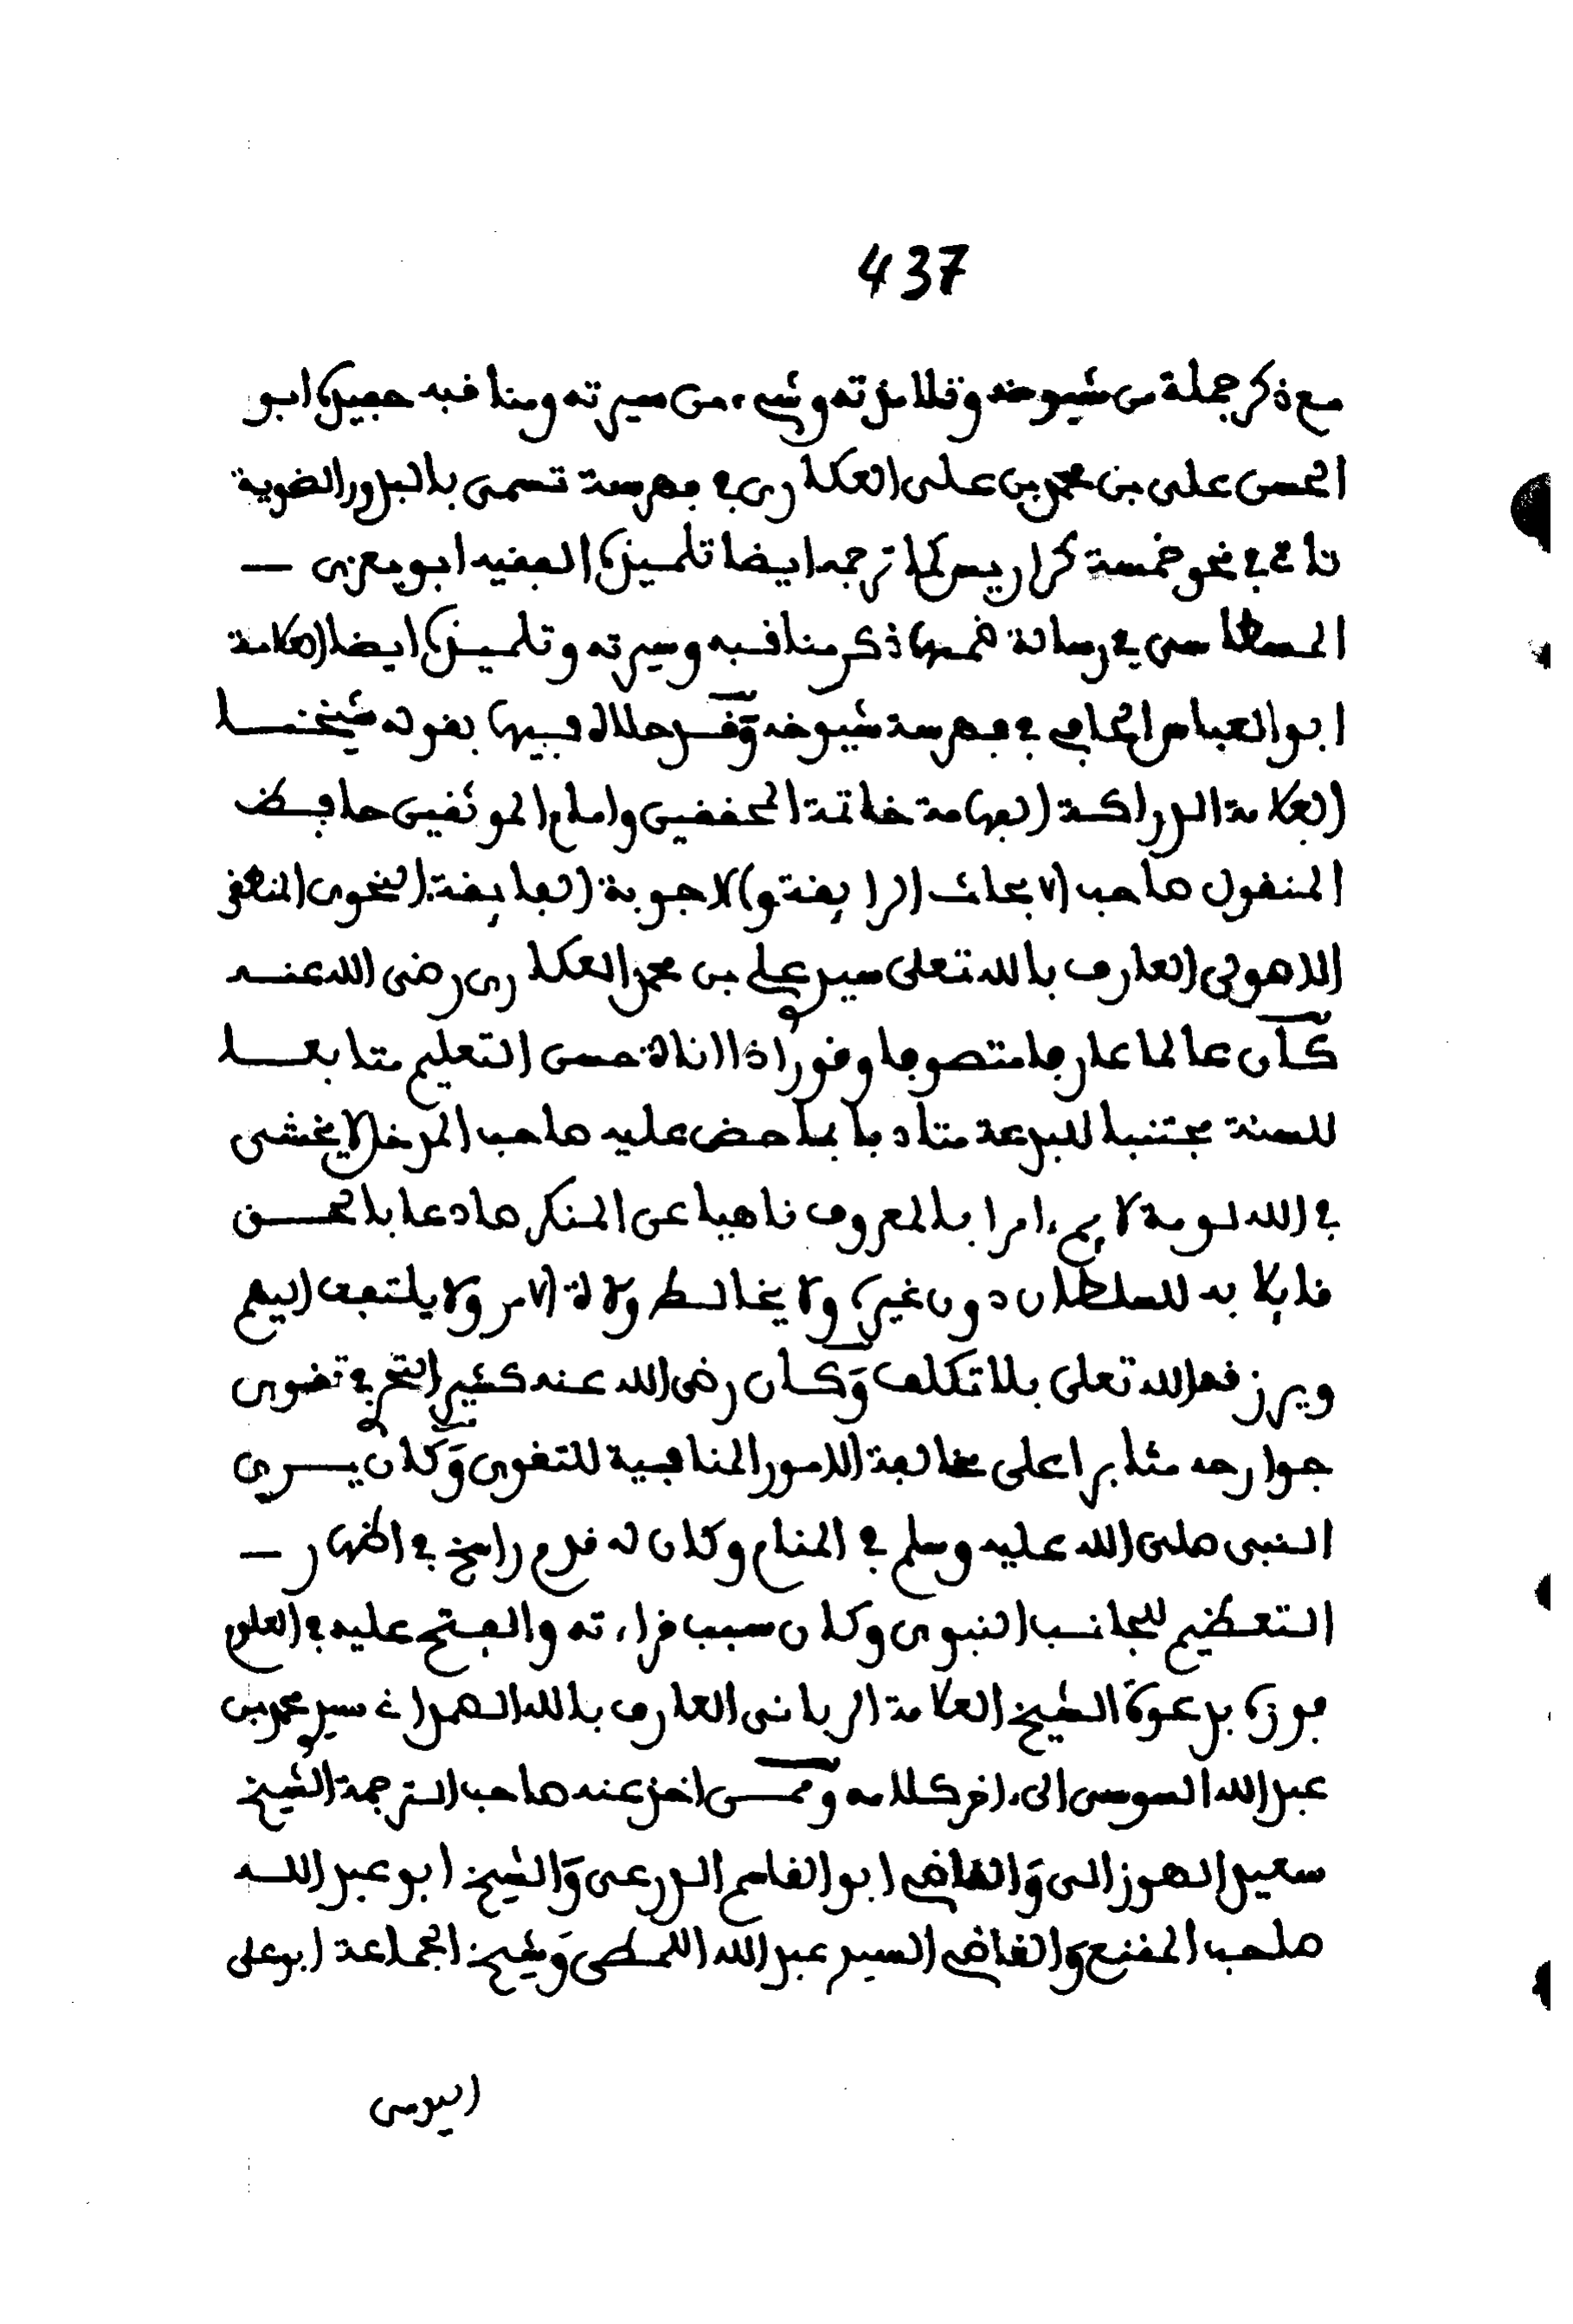 437
مع ذكر جملة من شيوخه وتلامذته وشيء من سيرته ومناقبه حفيده ابو
الحسن على بن محمد بن على العكارى في فهرسة تسمى بالبدور الضوية
تاتى في نحو خمسة كراريس كما ترجمه ايضا تلميذه الفقيه ابو يعزى
المسطاسى في رسالة ضمنها ذكر مناقبه وسيرته وتلميذه ايضا العلامة
ابو العباس الحافى في فهرسة شيوخه وقد حلاه فيها بقوله شيخنا
العلامة الدراكة الفهامة خاتمة المحققين وامام الموثقين حافظ
المنقول صاحب الابحاث الرايقة والاجوبة الفايقة النحوى المنطقى
اللاهوتى العارف بالله تعلى سيد على بن محمد العكارى رضى الله عنه
كان عالما عارفا متصوفا وقورا ذا اناة حسن التعليم متابعا
للسنة مجتنبا للبدعة متادبا بما حض عليه صاحب المدخل لا يخشى
في الله لومة لايم ءامرا بالمعروف ناهيا عن المنكر صادعا بالحق
قايلا به للسلطان دون غيره ولا يخالط ولاة الامر ولا يلتفت اليهم
ويرزقه الله تعلى بلا تكلف وكان رضى الله عنه كثير التحرى في تقوى
جوارحه مثابرا على مخالفة الامور المنافية للتقوى وكان يرى
النبى صلى الله عليه وسلم في المنام وكان له قدم راسخ في اظهار
التعظيم للجانب النبوى وكان سبب قراءته والفتح عليه في العلم
فوزه بدعوة الشيخ العلامة الربانى العارف بالله الصمدانى سيد محمد بن
عبد الله السوسى الى ءاخر كلامه وممن اخذ عنه صاحب الترجمة الشيخ
سعيد الهوزالى والقاضى ابو القاسم الدرعى والشيخ ابو عبد الله
صاحب المقنع والقاضى السيد عبد الله اللمطى وشيخ الجماعة ابو على
اليوسى